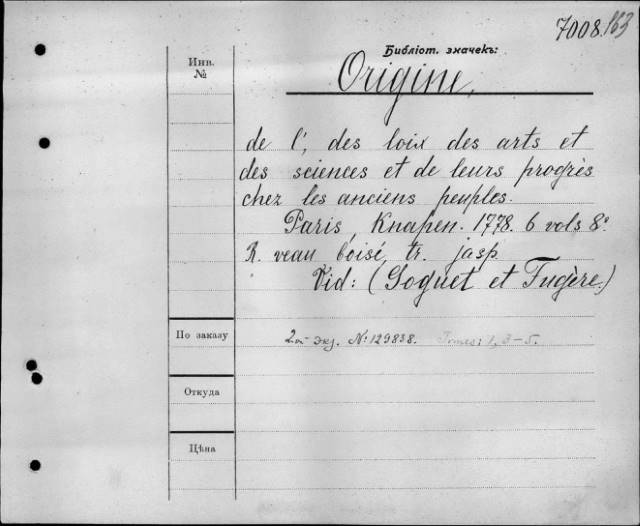 7008.163
Библіот. значекъ:
Инв.
№
Origine,
de l', des loix des arts et
des sciences et de leurs progrès
chez les anciens peuples.
Paris, Knapen. 1778. 6 vols 8º
R. veau boisé, tr. jasp.
Vid: (Goguet et Fugère.)
По заказу
2ой экз. №: 129838. Tomes: 1, 3-5.
Откуда
Цѣна